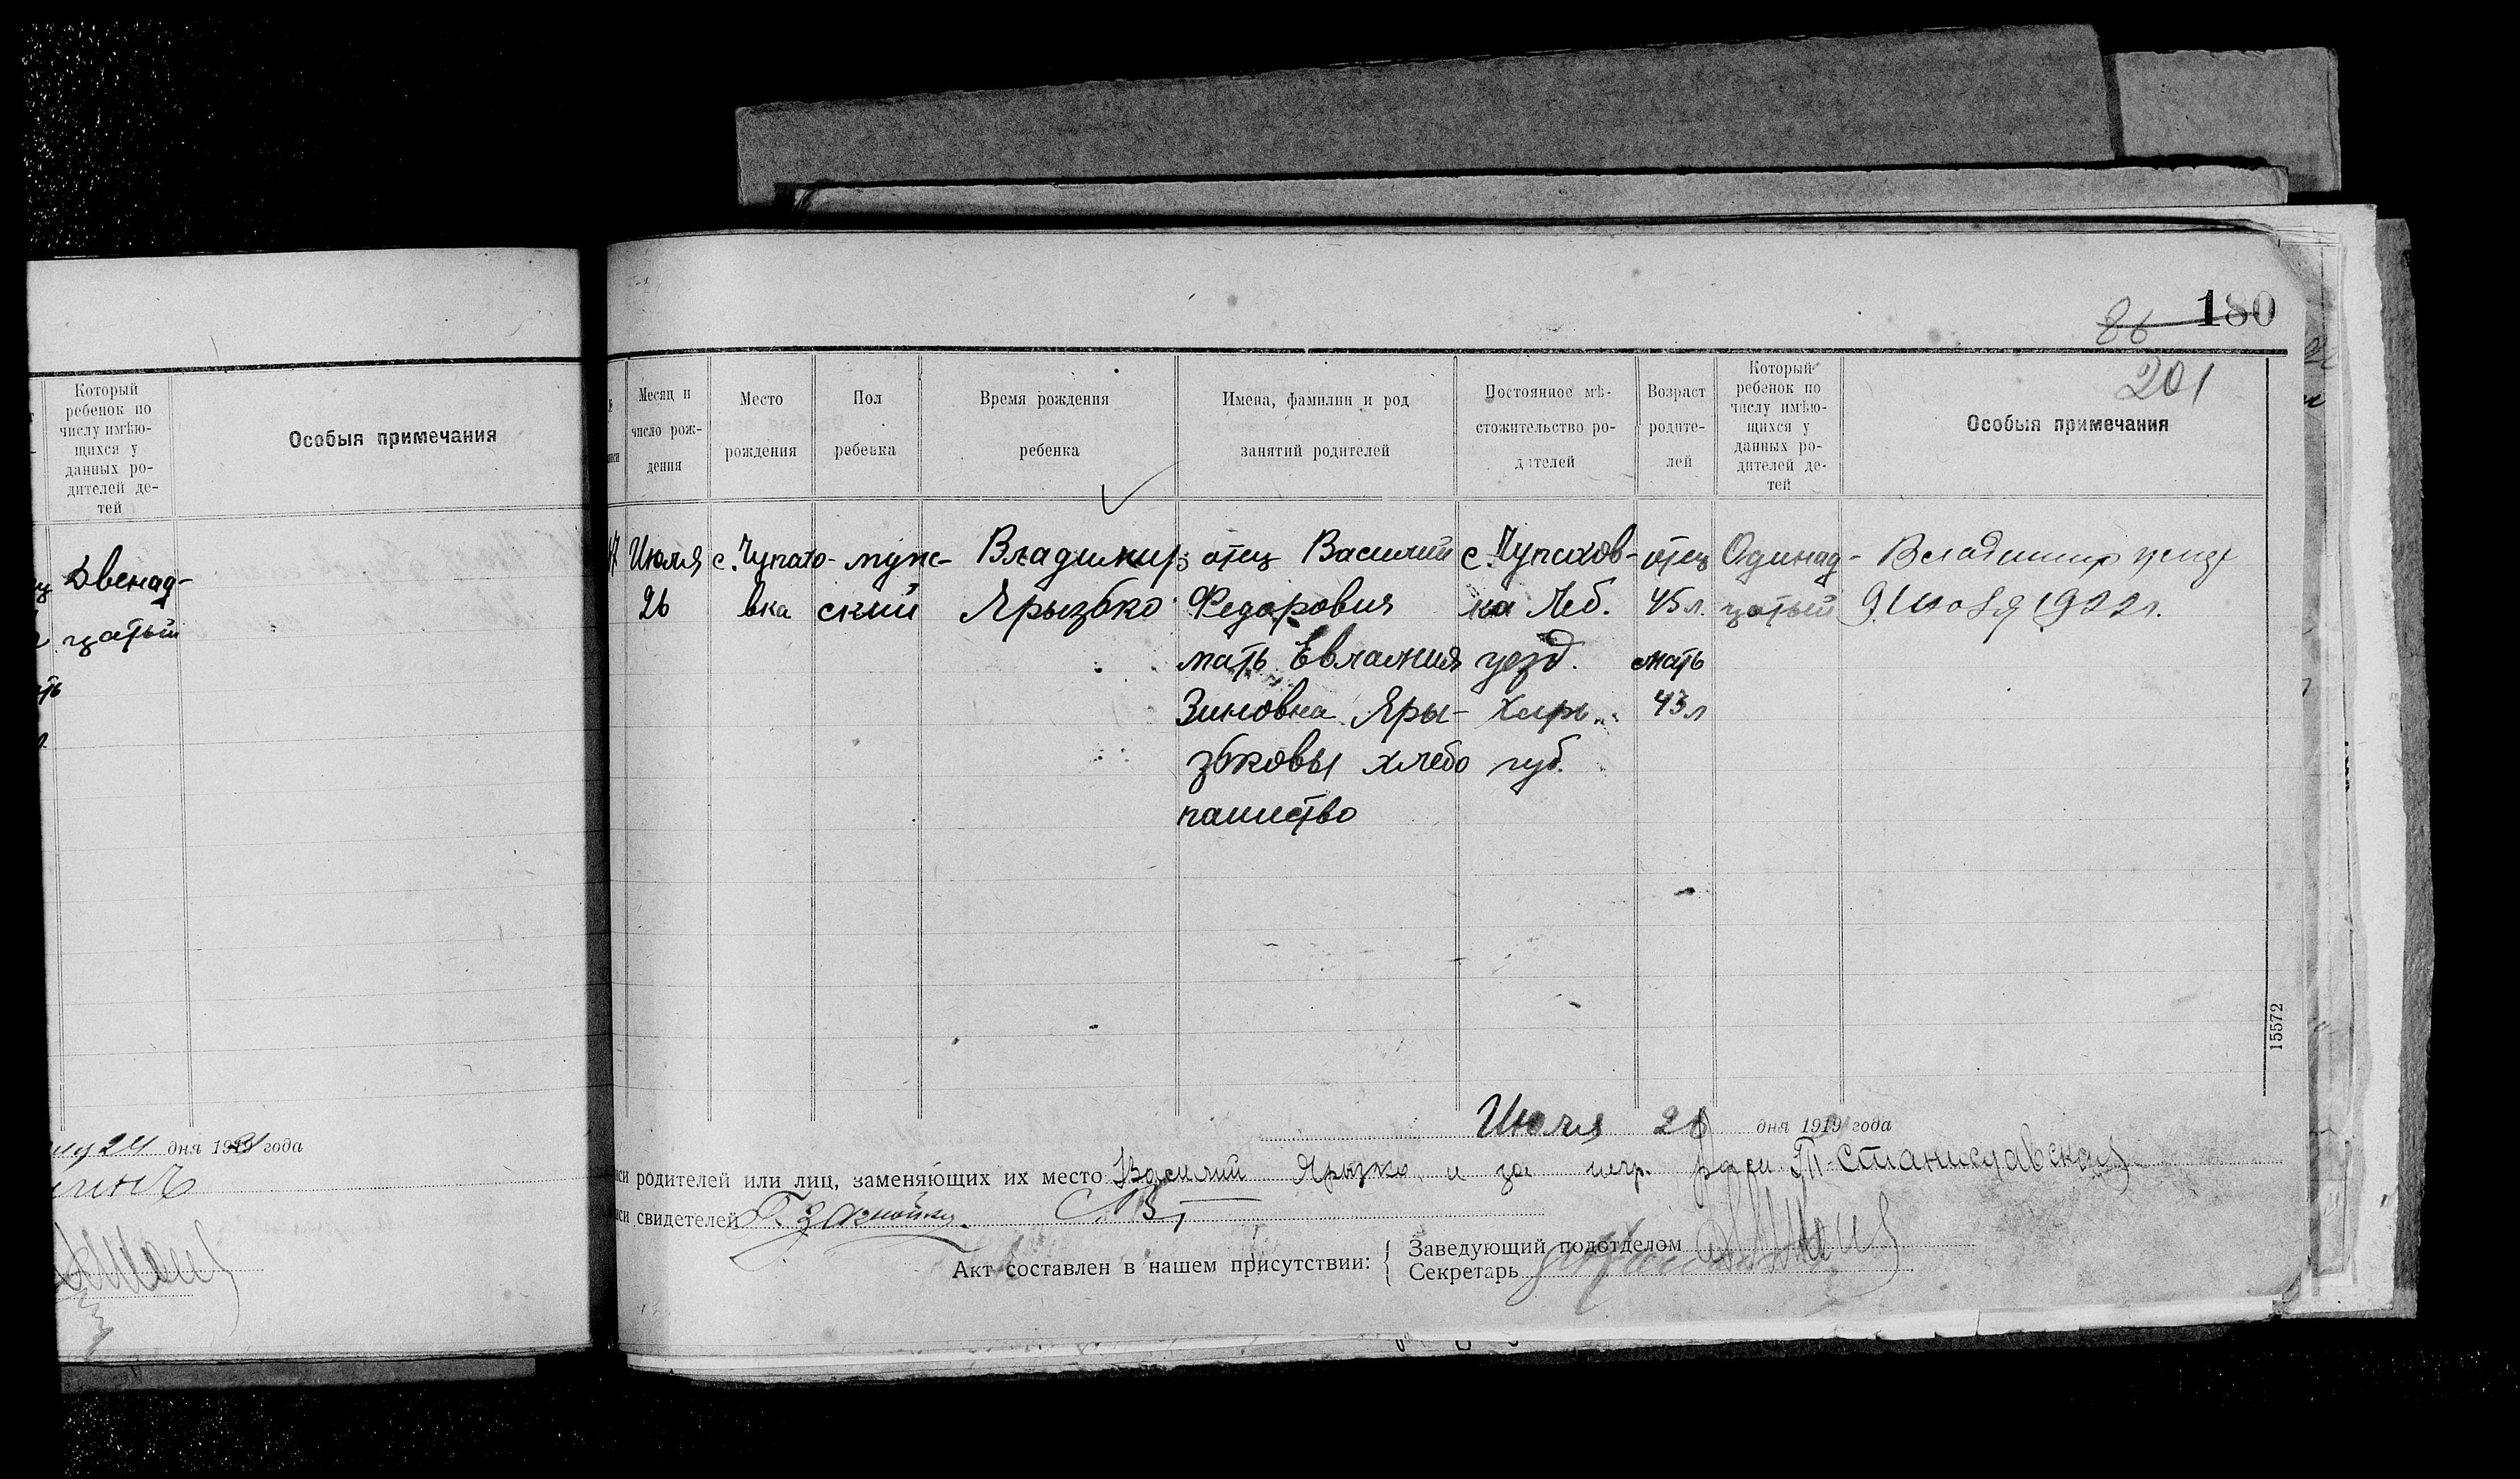 180
86
201
Который
ребенок по
числу имѣю-
щихся у
данных ро-
дителей де-
тей
Особыя примечания
Двенад-
цатый
24 дня 19 года
Месяц и
число рож-
дения
Место
рождения
Пол
ребенка
Время рождения
ребенка
Имена, фамилии и род
занятий родителей
Постоянное мѣ-
стожительство ро-
дителей
Возраст
родите-
лей
Который
ребенок по
числу имѣю-
щихся у
данных ро-
дителей де-
тей
Особыя примечания
Июля
26
с. Чупахо-
вка
муж-
ский
Владимир
Ярызько
отец Василий
Федорович
мать Евлампия
Зиновна Яры-
зьковы хлебо
пашество
с. Чупахов-
ка Леб.
уезд.
Харь.
губ.
отец
45 л.
мать
43 л
Одинад-
цатый
Владимир умер
9. 1922 г.
Июля 26 дня 1919 года
родителей или лиц, заменяющих их место Василий Ярызко, и за негр. расп. Т. Станиславская
свидетелей
Акт составлен в нашем присутствии:
Заведующий подотделом
Секретарь
15572